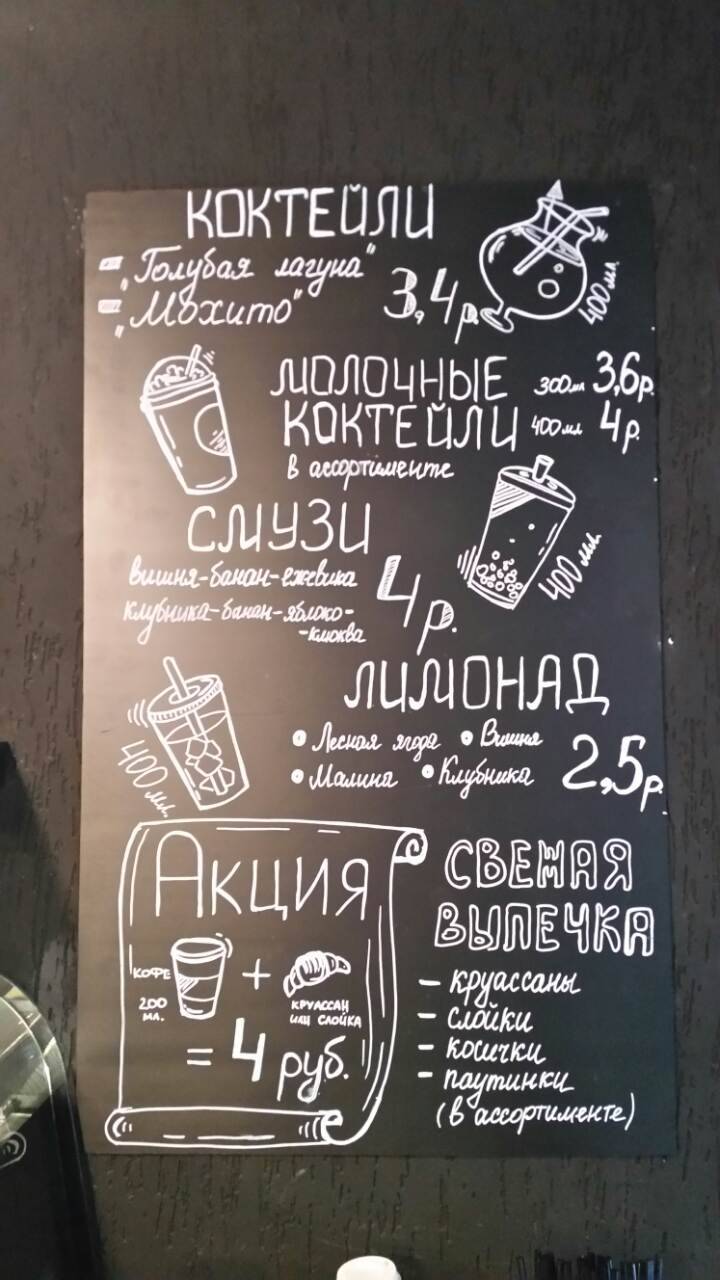 КОКТЕЙЛИ
„Голубая лагуна"
„Мохито"
3,4р.
400мл.
МОЛОЧНЫЕ 300мл 3,6р.
КОКТЕЙЛИ 400мл 4р.
в ассортименте
СМУЗИ
вишня-банан-ежевика
клубника-банан-яблоко-
-клюква
4р.
400 мл.
ЛИМОНАД
• Лесная ягода • Вишня
• Малина • Клубника
2,5р.
400 мл.
Акция
КОФЕ
200
МЛ.
+
КРУАССАН
ИЛИ СЛОЙКА
= 4 руб.
СВЕЖАЯ
ВЫПЕЧКА
- круассаны
- слойки
- косички
- паутинки
(в ассортименте)